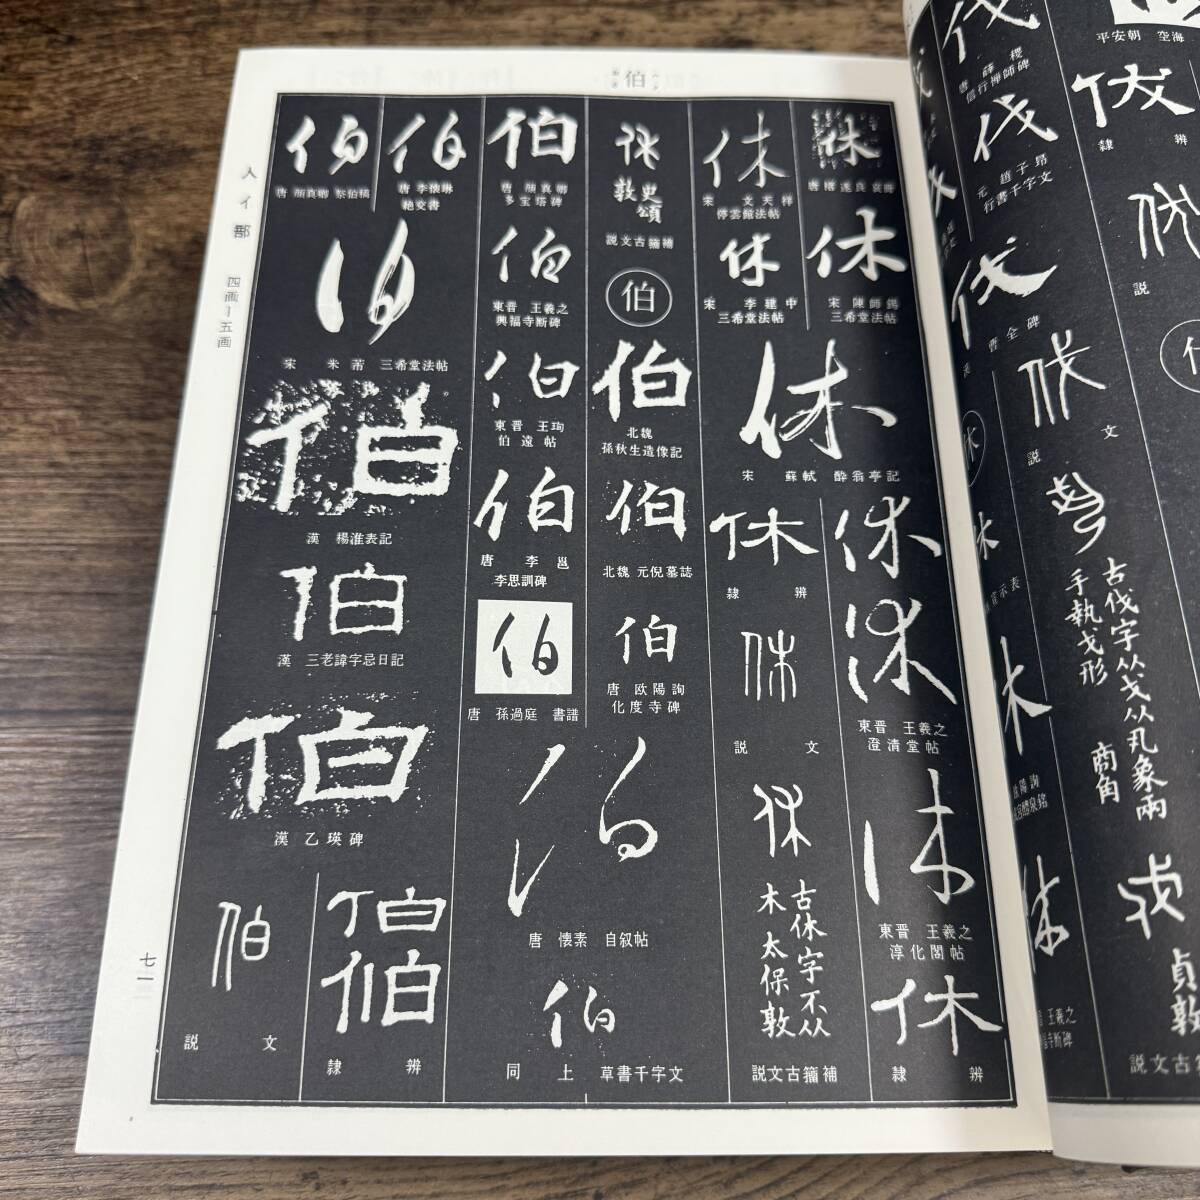 伯
人イ部　四画ー五画
七一
休
唐 褚遂良 哀冊
休
宋 陳師錫
三希堂法帖
休
宋 文天祥
停雲館法帖
休
宋 李建中
三希堂法帖
休
宋 蘇軾 酔翁亭記
休
休
東晋 王羲之
澄清堂帖
休
東晋 王羲之
淳化閣帖
休
隷辨
休
隷辨
休
説文
休
古休字不从
木 太保敦
説文古籀補
休
史頌
敦
説文古籀補
伯
伯
北魏
孫秋生造像記
伯
北魏 元倪墓誌
伯
唐 欧陽詢
化度寺碑
伯
唐 顔真卿
多宝塔碑
伯
東晋 王羲之
興福寺断碑
伯
東晋 王珣
伯遠帖
伯
唐 李邕
李思訓碑
伯
唐 孫過庭 書譜
伯
唐 懐素 自叙帖
伯
同上 草書千字文
伯
唐 李懐琳
絶交書
伯
唐 顔真卿 祭伯稿
伯
宋 米芾 三希堂法帖
伯
漢 楊淮表記
伯
漢 三老諱字忌日記
伯
漢 乙瑛碑
伯
伯
隷辨
伯
説文
平安朝 空海
伐
隷辨
説
伐
唐 薛稷
信行禅師碑
伐
元 趙子昂
行書千字文
伐
曹全碑
伐
説文
古伐字从戈从丮象兩
手執戈形 商角
貞敦
説文古
休
休
休
休